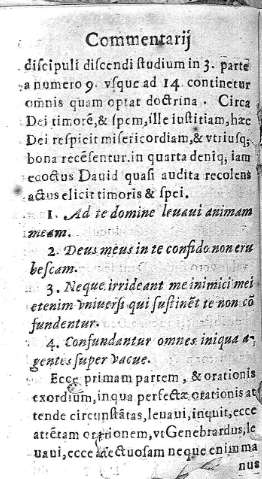 Commentarij
discipuli discendi studium in 3. parte
a numero 9. vsque ad 14 continetur
omnis quam optat doctrina. Circa
Dei timorē, & spem, ille iustitiam, hæc
Dei respicit misericordiam, & vtriusq;
bona recēsentur. in quarta deniq; iam
edoctus Dauid quasi audita recolens
actus elicit timoris & spei.
1. Ad te domine leuaui animam
meam.
2. Deus meus in te confido non eru
bescam.
3. Neque irrideant me inimici mei
etenim vniuersi qui sustinēt te non cō
fundentur.
4. Confundantur omnes iniqua a-
gentes super vacue.
Ecce primam partem, & orationis
exordium, in qua perfectæ orationis at
tende circunstātias, leuaui, inquit, ecce
attētam orationem, vt Genebrardus, le
uaui, ecce affectuosam neque enim ma
nus